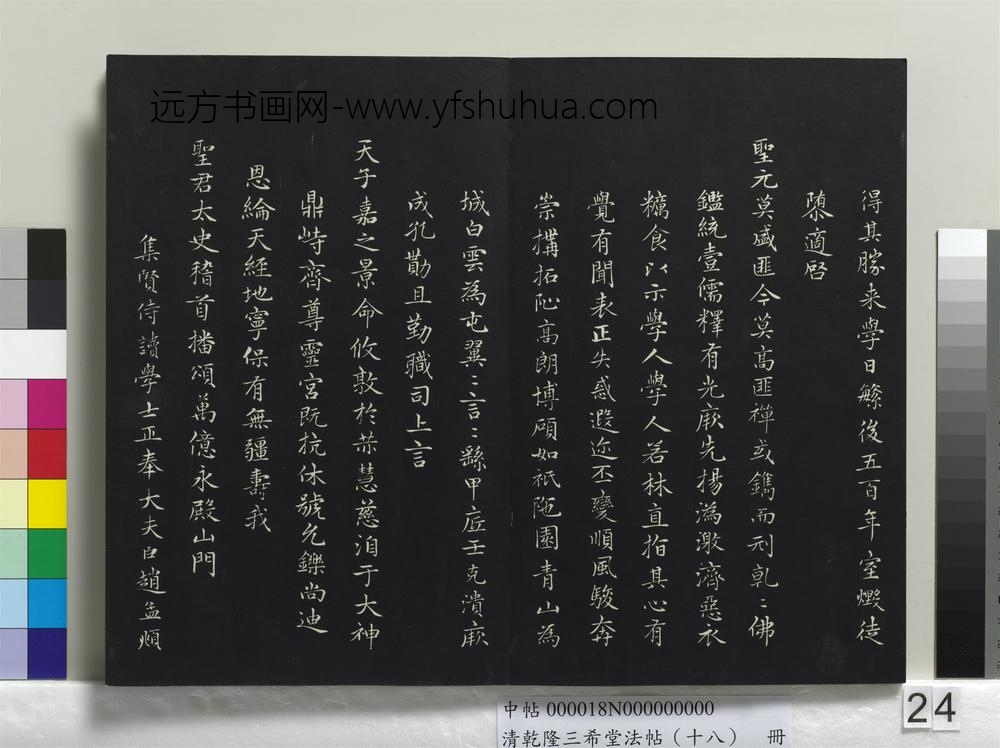 远方书画网-www.yfshuhua.com
得其勝来學日緐後五百年室燬徒
隳適啓
聖元莫盛匪今莫高匪禅或鐫而刋乾〻佛
鑑統壹儒釋有光厥先揚溈激濟惡衣
糲食以示學人學人若林直指其心有
覺有聞表正失惑遐迩丕變順風駿奔
崇搆拓阯高朗博碩如祇陁園青山為
城白雲為屯翼〻言〻繇甲庢壬克潰厥
成孔勩且勤職司上言
天子嘉之景命攸敷於萘慧慈洎于大神
鼎峙齊尊靈宮既抗休號允鑠尚迪
恩綸天經地寧保有無疆壽我
聖君太史稽首播頌萬億永殿山門
集賢侍讀學士正奉大夫臣趙孟頫
中帖 000018N000000000
清乾隆三希堂法帖（十八） 冊
24